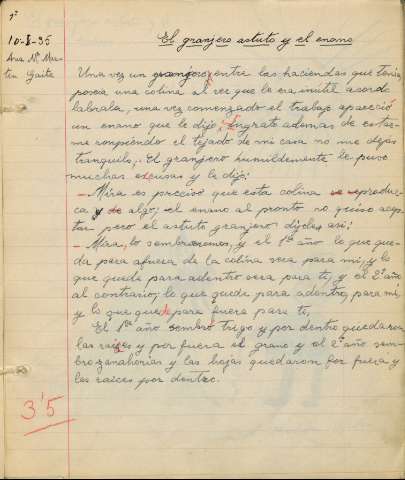 1º
10-I-35
Ana Mª Mar-
tín Gaite
El granjero astuto y el enano
Una vez un granjero, entre las haciendas que tenia,
poseia una colina al ver que le era inutil acordo
labrala, una vez comenzado el trabajo apareció
un enano que le dijo: Ingrato ademas de estar-
me rompiendo el tejado de mi casa no me dejas
tranquilo,. El granjero humildemente le puso
muchas excusas y le dijo:
— Mira es preciso que esta colina se reprodu-
ca y de algo; el enano al pronto no quiso acep-
tar pero el astuto granjero dijoles asi;
— Mira, lo sembraremos, y el 1er año lo que que-
da para afuera de la colina sera para mi, y lo
que quede para adentro sera para ti, y el 2º año
al contrario, lo que quede para adentro, para mi
y lo que quede para fuera para ti,
El 1er año sembro trigo y por dentro quedaron
las raices y por fuera el grano y el 2º año sem-
bro zanahorias y las hojas quedaron por fuera y
las raices por dentro.
3'5